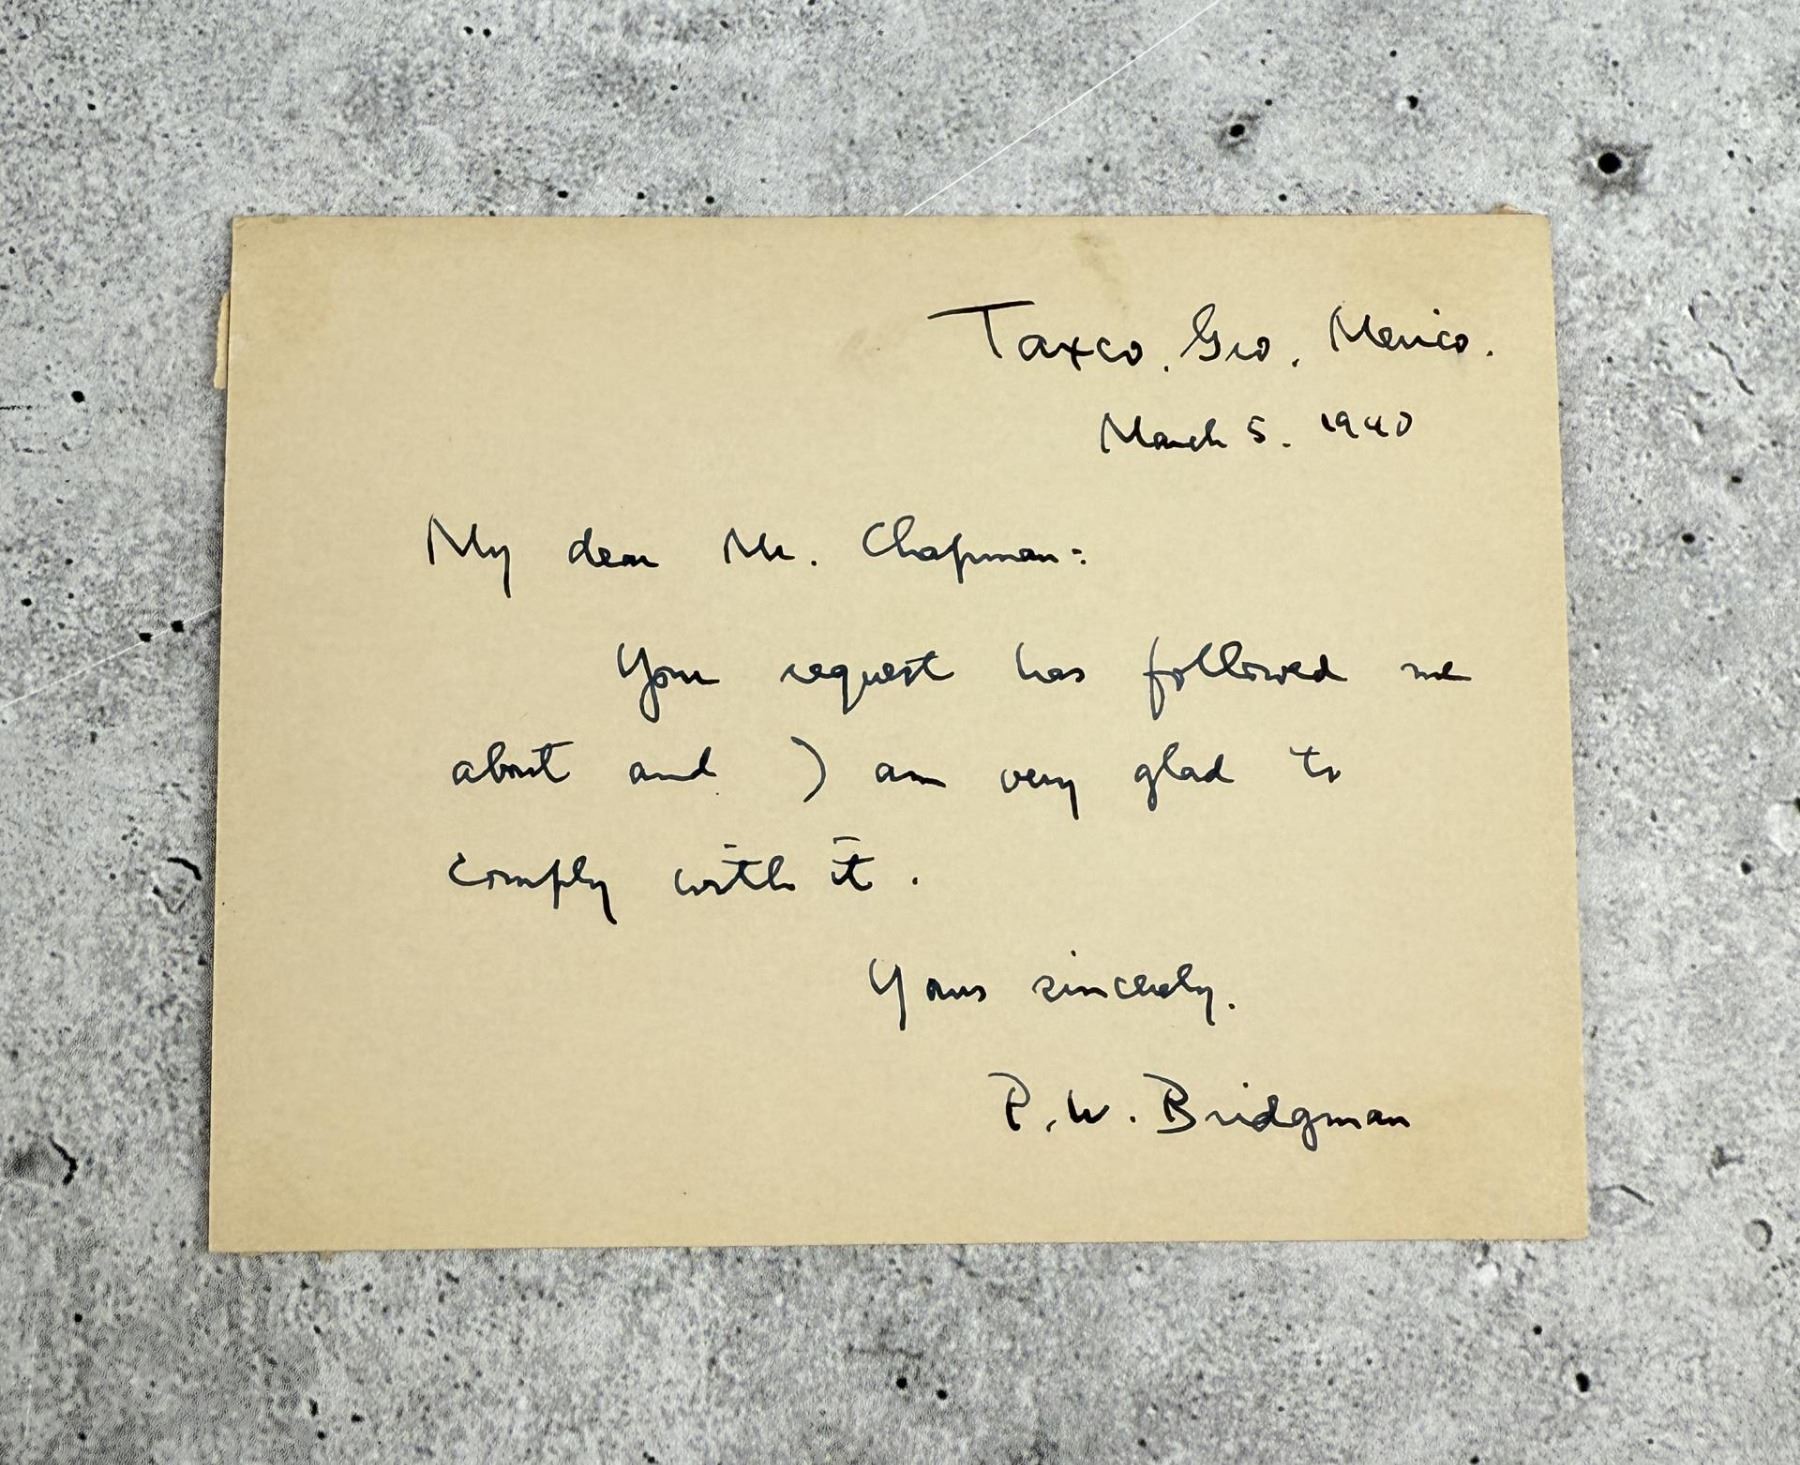 Taxco, Gro, Mexico.
March 5. 1940
My dear Mr. Chapman:
Your request has followed me
about and I am very glad to
comply with it.
Yours sincerely.
P. W. Bridgman